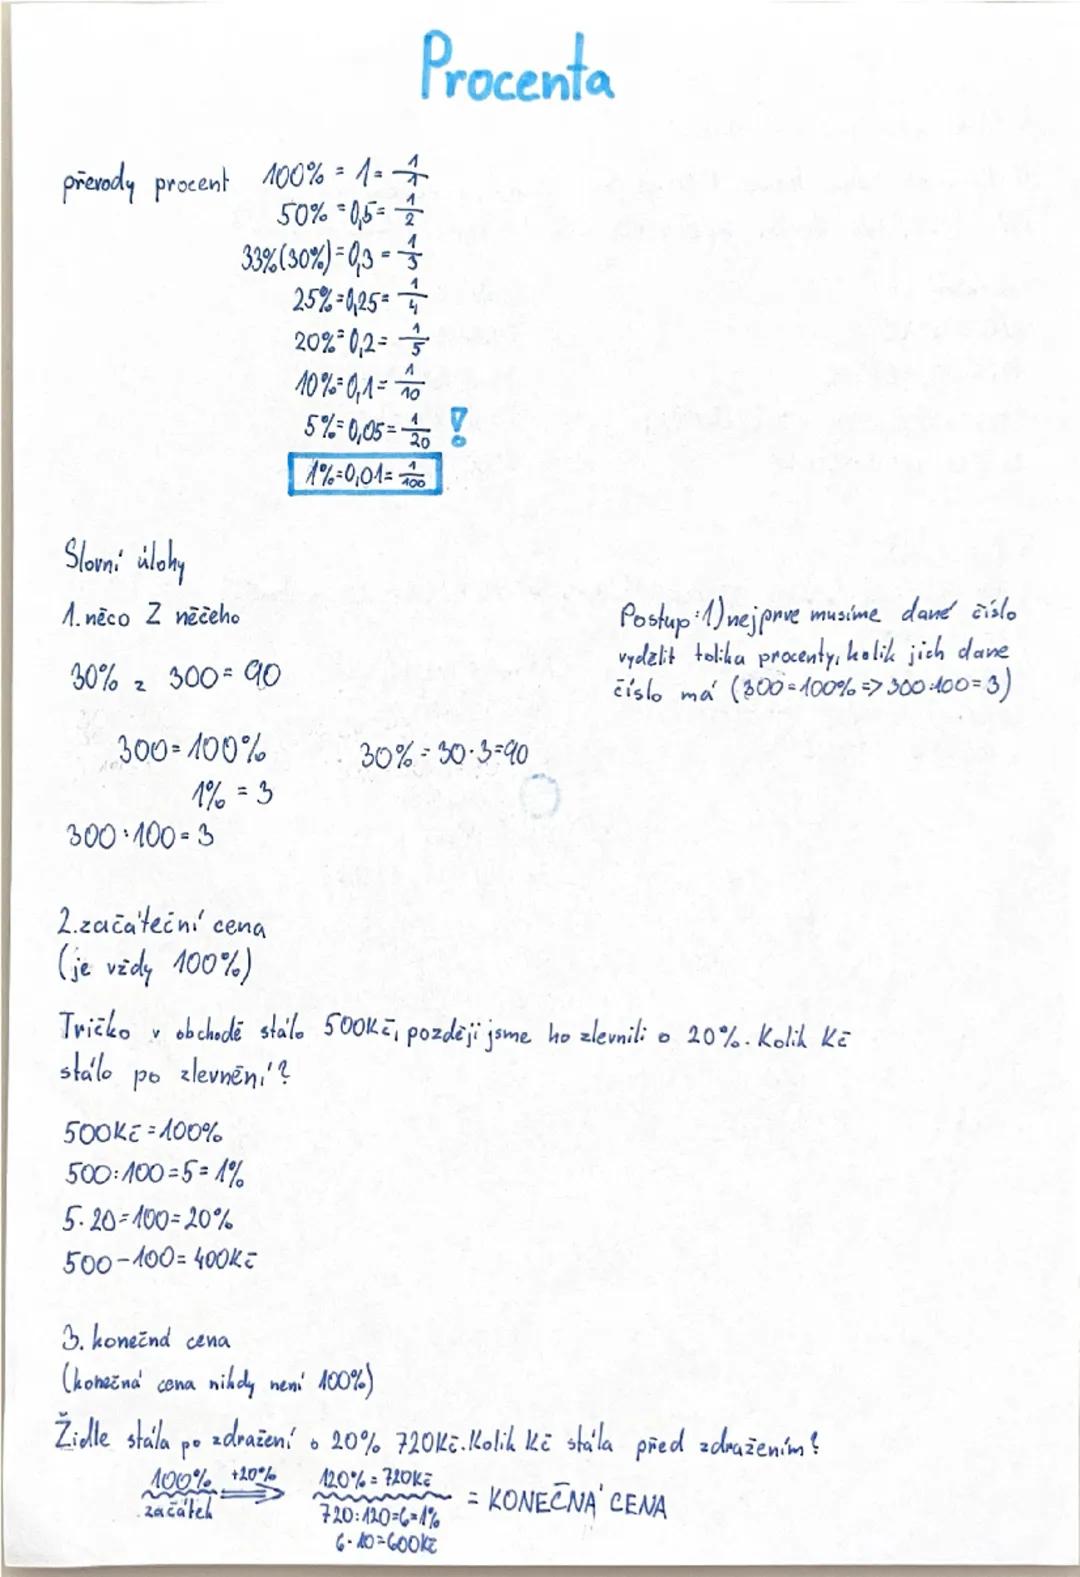 Procenta
převody procent 100% = 1 = 1/1
50% = 0,5 = 1/2
33% (30%) = 0,3 = 1/3
25% = 0,25 = 1/4
20% = 0,2 = 1/5
10% = 0,1 = 1/10
5% = 0,05 = 1/20 !
1% = 0,01 = 1/100
Slovní úlohy
1. něco Z něčeho
30% z 300 = 90
300 = 100%
1% = 3
300 : 100 = 3
30% = 30 · 3 = 90
Postup: 1) nejprve musíme dané číslo
vydělit tolika procenty, kolik jich dane
číslo má (300 = 100% => 300:100 = 3)
2. začáteční cena
(je vždy 100%)
Tričko v obchodě stálo 500Kč, později jsme ho zlevnili o 20%. Kolik Kč
stálo po zlevnění?
500Kč = 100%
500:100 = 5 = 1%
5 · 20 = 100 = 20%
500 - 100 = 400Kč
3. konečná cena
(konečná cena nikdy není 100%)
Židle stála po zdražení o 20% 720Kč. Kolik Kč stála před zdražením?
100% +20% 120% = 720Kč
začátek 720:120 = 6 = 1% = KONEČNÁ CENA
6 · 10 = 600Kč